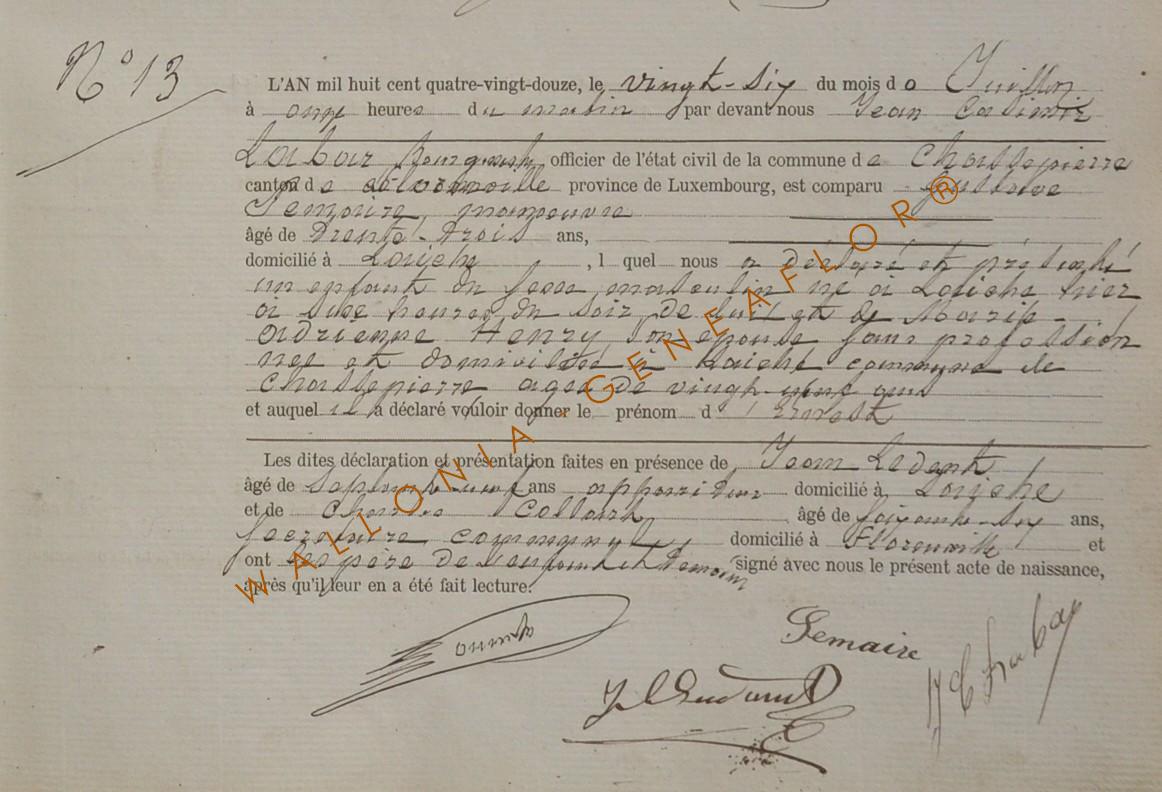 N° 13
L'AN mil huit cent quatre-vingt-douze, le vingt-six du mois de Juillet
à onze heures du matin par devant nous Jean Casimir
officier de l'état civil de la commune de Chassepierre
canton de province de Luxembourg, est comparu Gustave
Lemaire, manoeuvre
âgé de Trente-trois ans,
domicilié à Laiche, lequel nous a déclaré et présenté
un enfant du sexe masculin né à Laiche hier
à heures du soir, de lui et de Marie-
Adrienne Henry, son épouse sans profession
née et domiciliée à Laiche commune de
Chassepierre agée de vingt- ans
et auquel il a déclaré vouloir donner le prénom d'Ernest
Les dites déclaration et présentation faites en présence de Jean
âgé de ans domicilié à Laiche
et de Charles Collard, âgé de soixante-six ans,
secrétaire communal, domicilié à Florenville et
ont les père de l'enfant et témoins signé avec nous le présent acte de naissance,
après qu'il leur en a été fait lecture.
Lemaire
WALLONIA - GENEAFLOR ®